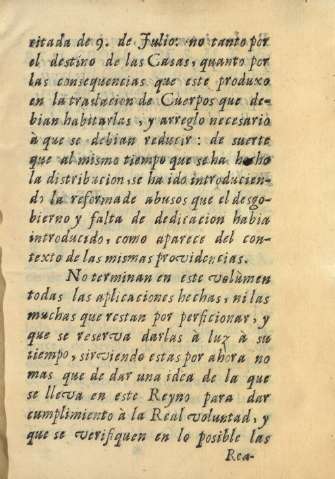 citada de 9. de Julio: no tanto por
el destino de las Casas, quanto por
las consequencias que este produxo
en la traslacion de Cuerpos que de-
bian habitarlas, y arreglo necesario
à que se debian reducir: de suerte
que al mismo tiempo que se ha hecho
la distribucion, se ha ido introducien-
do la reforma de abusos que el desgo-
bierno y falta de dedicacion habia
introducido, como aparece del con-
texto de las mismas providencias.
No terminan en este volùmen
todas las aplicaciones hechas, ni las
muchas que restan por perficionar, y
que se reserva darlas à luz à su
tiempo, sirviendo estas por ahora no
mas que de dar una idea de la que
se lleva en este Reyno para dar
cumplimiento à la Real voluntad, y
que se verifiquen en lo posible las
Rea-